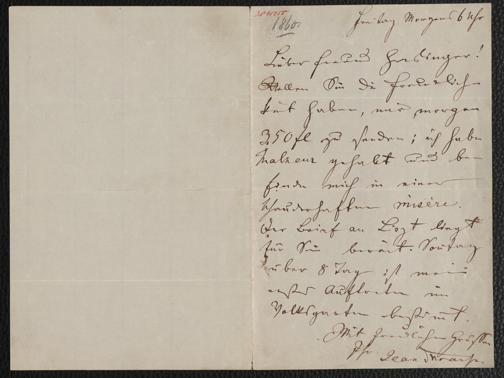 1860.
Freitag Morgens 6 Uhr
Lieber Freund Haslinger!
Wollen Sie die Freundlich-
keit haben, mir morgen
350 fl zu senden; ich habe
Malheur gehabt und be-
finde mich in einer
schauderhaften misère.
Der Brief an liegt
für Sie bereit. Sonntag
über 8 Tag ist mein
erstes Auftreten im
Volksgarten bestimmt.
Mit freundlichen Grüssen
Ihr
Jean